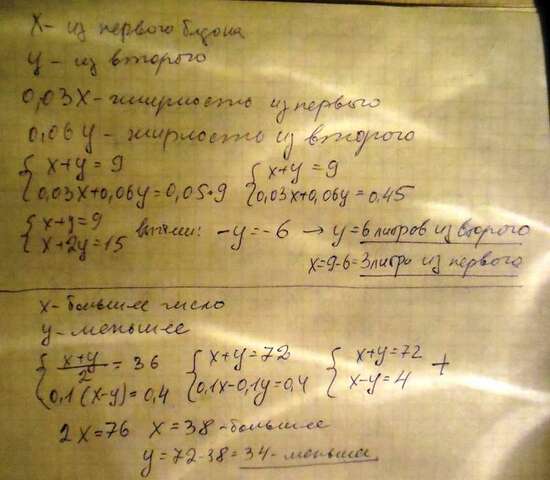 x - из первого бидона
y - из второго
0,03x - жирность из первого
0,06y - жирность из второго
{ x+y=9   { x+y=9
0,03x+0,06y=0,05·9   0,03x+0,06y=0,45
{ x+y=9
x+2y=15   вычтем: -y=-6 → y=6 литров из второго
x=9-6=3 литра из первого
x - большее число
y - меньшее
{ x+y/2 = 36   { x+y=72   { x+y=72   +
0,1(x-y)=0,4   0,1x-0,1y=0,4   x-y=4
2x=76   x=38 - большее
y=72-38=34 - меньшее